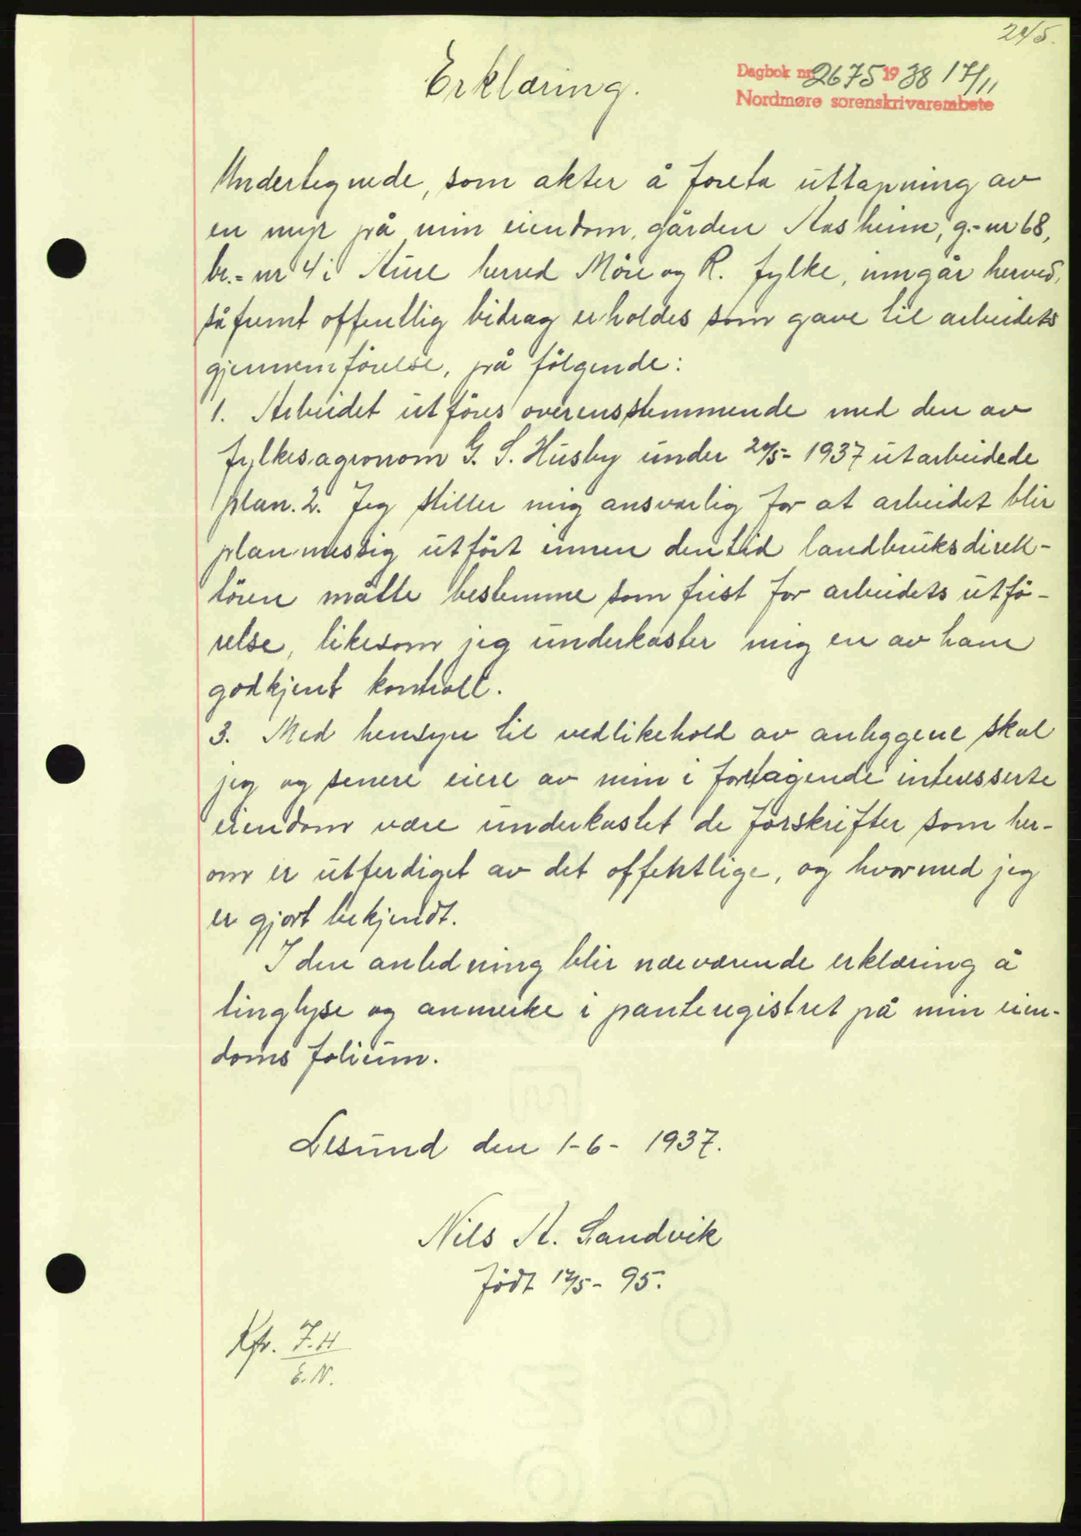 245.
Erklæring.
Dagbok nr 2675 1938 17/11
Nordmøre sorenskrivarembete
Undertegnede, som akter å foreta uttapning av
en myr på min eiendom, gården Aasheim, g.-nr 68,
br.-nr 4 i Aure herred Möre og R. fylke, inngår herved,
såfremt offentlig bidrag erholdes som gave til arbeidets
gjennemförelse, på fölgende:
1. Arbeidet utföres overensstemmende med den av
fylkesagronom G. S. Husby under 5- 1937 utarbeidede
plan. 2. Jeg stiller mig ansvarlig for at arbeidet blir
planmessig utfört innen den tid landbruksdirek-
tören måtte bestemme som frist for arbeidets utfö-
relse, likesom jeg underkaster mig en av ham
godkjent kontroll.
3. Med hensyn til vedlikehold av anleggene skal
jeg og senere eiere av min i foretagende interesserte
eiendom være underkastet de forskrifter som her-
om er utferdiget av det offentlige, og hvormed jeg
er gjort bekjendt.
I den anledning blir næværende erklæring å
tinglyse og anmerke i panteregistret på min eien-
doms folium.
Lesund den 1-6- 1937.
Nils A. Sandvik
född 5- 95.
Kfr. J.H
E.N.